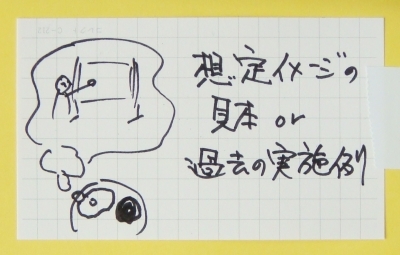 想定イメージの
見本 or
過去の実施例